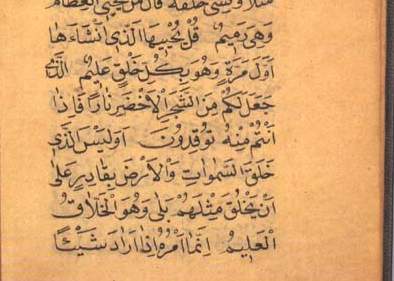 مثلا ونسى خلقه قال من يحيى العظام
وَهِىَ رَمِيمٌ قُلْ يُحْيِيهَا الَّذِى اَنْشَاَهَا
اَوَّلَ مَرَّةٍ وَهُوَ بِكُلِّ خَلْقٍ عَلِيمٌ الَّذِى
جَعَلَ لَكُمْ مِنَ الشَّجَرِ الْاَخْضَرِ نَارًا فَاِذَا
اَنْتُمْ مِنْهُ تُوقِدُونَ اَوَلَيْسَ الَّذِى
خَلَقَ السَّمٰوَاتِ وَالْاَرْضَ بِقَادِرٍ عَلٰى
اَنْ يَخْلُقَ مِثْلَهُمْ بَلٰى وَهُوَ الْخَلَّاقُ
الْعَلِيمُ اِنَّمَا اَمْرُهُ اِذَا اَرَادَ شَيْئًا